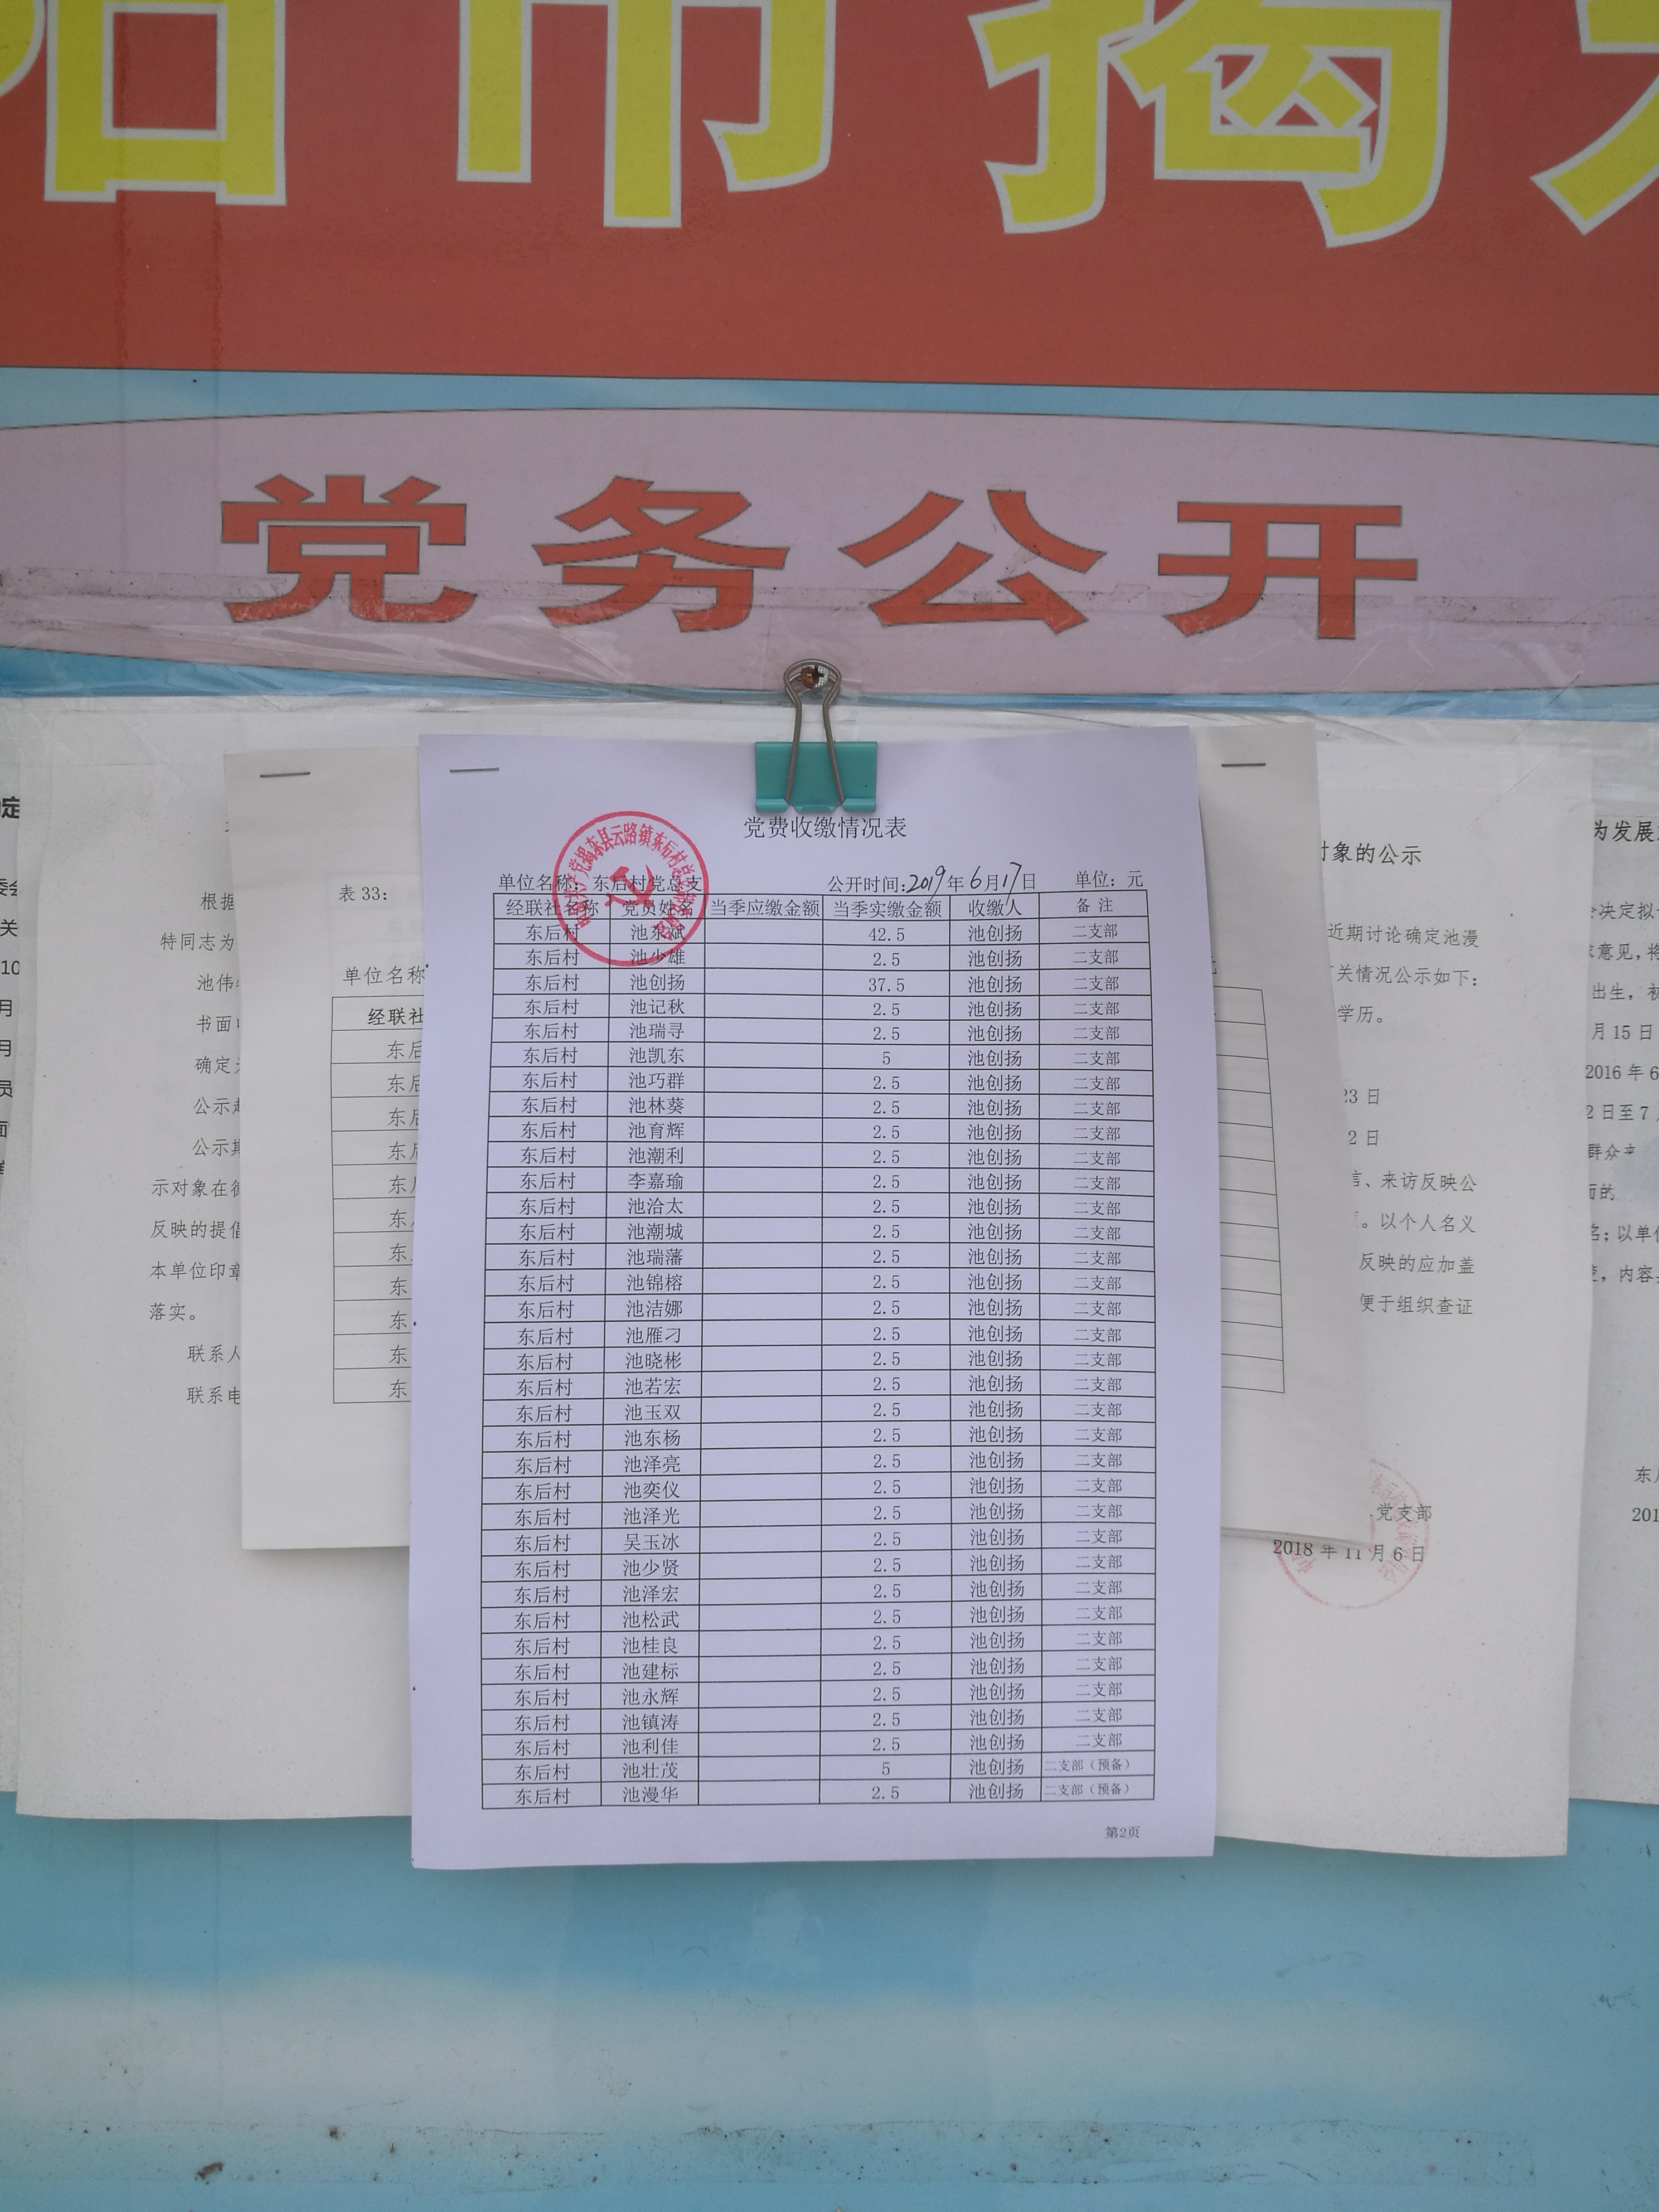 市揭
党务公开
党费收缴情况表
单位名称：东后村党总支 公开时间:2019年6月17日 单位：元
经联社名称 党员姓名 当季应缴金额 当季实缴金额 收缴人 备注
东后村 池东斌 42.5 池创扬 二支部
东后村 池少雄 2.5 池创扬 二支部
东后村 池创扬 37.5 池创扬 二支部
东后村 池记秋 2.5 池创扬 二支部
东后村 池瑞寻 2.5 池创扬 二支部
东后村 池凯东 5 池创扬 二支部
东后村 池巧群 2.5 池创扬 二支部
东后村 池林葵 2.5 池创扬 二支部
东后村 池育辉 2.5 池创扬 二支部
东后村 池潮利 2.5 池创扬 二支部
东后村 李嘉瑜 2.5 池创扬 二支部
东后村 池洽太 2.5 池创扬 二支部
东后村 池潮城 2.5 池创扬 二支部
东后村 池瑞藩 2.5 池创扬 二支部
东后村 池锦榕 2.5 池创扬 二支部
东后村 池洁娜 2.5 池创扬 二支部
东后村 池雁刁 2.5 池创扬 二支部
东后村 池晓彬 2.5 池创扬 二支部
东后村 池若宏 2.5 池创扬 二支部
东后村 池玉双 2.5 池创扬 二支部
东后村 池东杨 2.5 池创扬 二支部
东后村 池泽亮 2.5 池创扬 二支部
东后村 池奕仪 2.5 池创扬 二支部
东后村 池泽光 2.5 池创扬 二支部
东后村 吴玉冰 2.5 池创扬 二支部
东后村 池少贤 2.5 池创扬 二支部
东后村 池泽宏 2.5 池创扬 二支部
东后村 池松武 2.5 池创扬 二支部
东后村 池桂良 2.5 池创扬 二支部
东后村 池建标 2.5 池创扬 二支部
东后村 池永辉 2.5 池创扬 二支部
东后村 池镇涛 2.5 池创扬 二支部
东后村 池利佳 2.5 池创扬 二支部
东后村 池壮茂 5 池创扬 二支部（预备）
东后村 池漫华 2.5 池创扬 二支部（预备）
第2页
表 33:
单位名称
经联社
东后
东后
东后
东
东
东
东
东
东
东
东
根据
特同志为
池伟
书面
确定
公示
公示期
示对象在
反映的提倡
本单位印章
落实。
联系人
联系电
对象的公示
近期讨论确定池漫
关情况公示如下：
学历。
23 日
2 日
、来访反映公
。以个人名义
反映的应加盖
便于组织查证
党支部
2018 年 11 月 6 日
为发展
决定拟
意见，将
出生，
月 15 日
2016 年 6
2 日至 7
群众来
面的
名；以单
，内容
东
201
定
委会
关
10
月
月
员
面